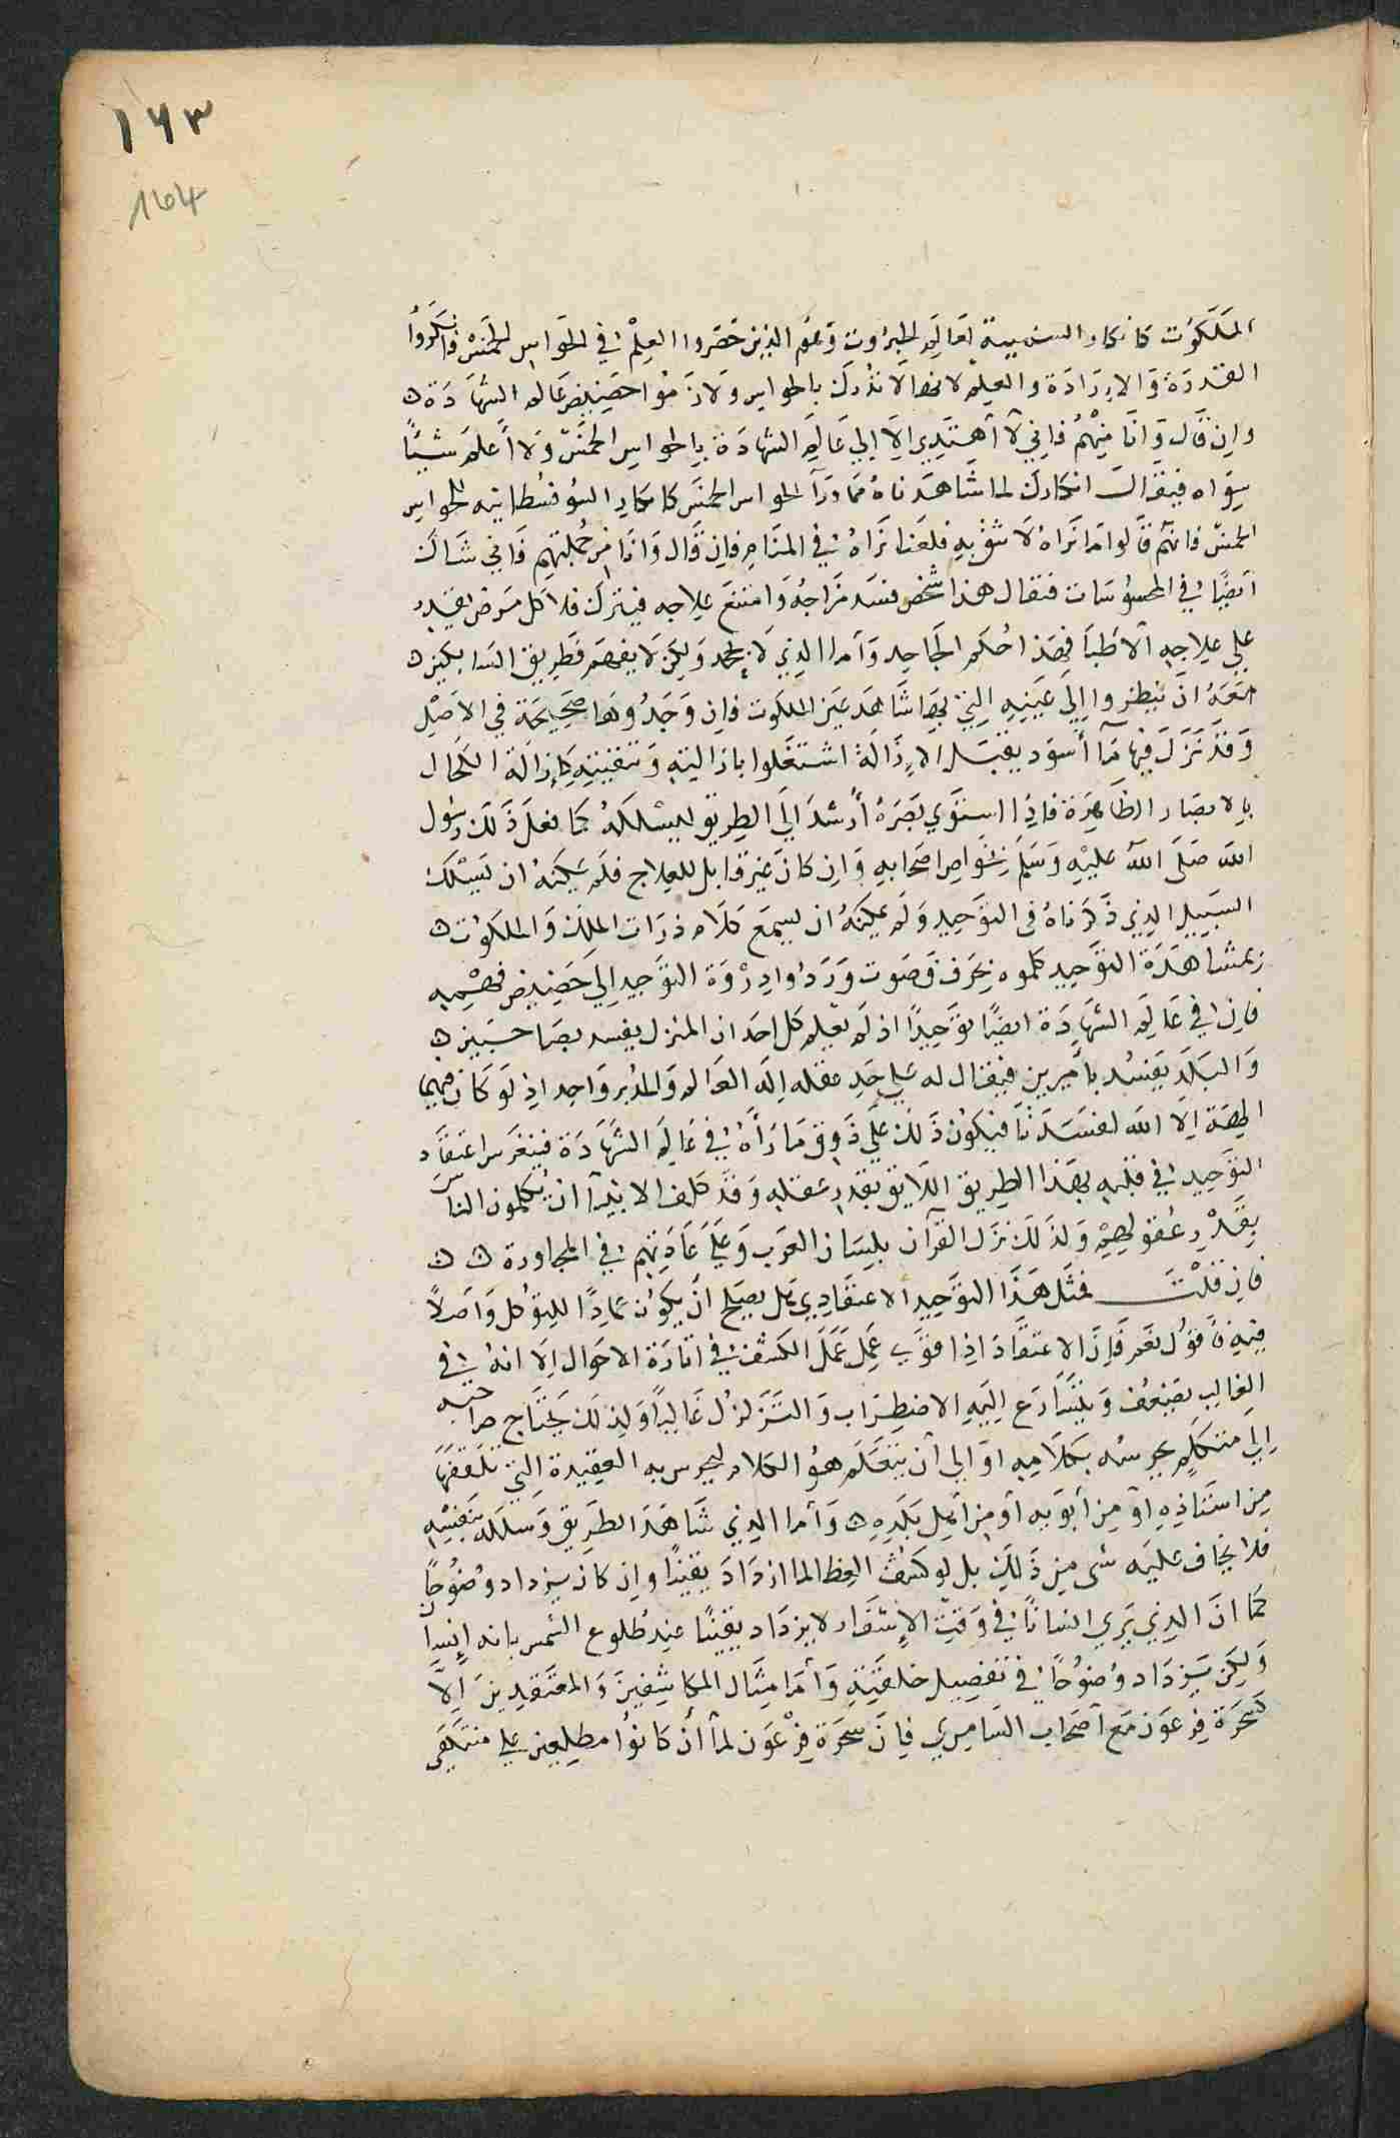 ١٦٣
164
الملكوت كانكار السمنية لعالم الجبروت وهم الذين حصروا العلم في الحواس الخمس فانكروا
القدرة والارادة والعلم لانها لا تدرك بالحواس ولازموا حضيض عالم الشهادة ه
وان قال وانا منهم فاني لا اهتدي الا الي عالم الشهادة بالحواس الخمس ولا اعلم شيئا
سواه فيقال انكارك لما شاهدناه مما ورآ الحواس الخمس كانكار السوفسطائيه للحواس
الخمس فانهم قالوا ما نراه لا نثق به فلعنا نراه في المنام فان قال وانا من جملتهم فاني شاك
ايضا في المحسوسات فيقال هذا شخص فسد مزاجه وامتنع علاجه فيترك فلا كل مرض يقدر
علي علاجه الاطبا فهذا حكم الجاحد واما الذي لا يجحد ولكن لا يفهم فطريق السالكين ه
معه ان ينظروا الي عينه التي بها شاهد عين الملكوت فان وجدوها صحيحة في الاصل
وقد نزل فيها مآ أسود يقبل الازالة اشتغلوا بازالته وتنقيته كازالة الكحال
بالابصار الظاهرة فاذا استوي بصره أرشد الي الطريق ليسلكه كما فعل ذلك رسول
الله صلى الله عليه وسلم بخواص اصحابه وان كان غير قابل للعلاج فلم يمكنه ان يسلك
السبيل الذي ذكرناه في التوحيد ولم يمكنه ان يسمع كلام ذرات الملك والملكوت ه
بمشاهدة التوحيد كلموه بحرف وصوت وردوا ذروة التوحيد الي حضيض فهمه
فان في عالم الشهادة ايضا توحيدا اذ لم يعلم كل احد ان المنزل يفسد بصاحبين ه
والبلد يفسد باميرين فيقال له علي حد عقله اله العالم والمدبر واحد اذ لو كان فيهما
الهة الا الله لفسدتا فيكون ذلك علي ذوق ما رأه في عالم الشهادة فينغرس اعتقاد
التوحيد في قلبه بهذا الطريق اللايق بقدر عقله وقد كلف الانبيآ ان يكلموا الناس
بقدر عقولهم ولذلك نزل القرآن بلسان العرب وعلي عادتهم في المحاورة ه ه
فان قلت فمثل هذا التوحيد الاعتقادي هل يصلح ان يكون عمادا للتوكل واصلا
فيه فاقول نعم فان الاعتقاد اذا قوي عمل عمل الكشف في اثارة الاحوال الا انه في
الغالب يضعف ويتسارع اليه الاضطراب والتزلزل غالبا ولذلك يحتاج صاحبه
الي متكلم يحرسه بكلامه او الي أن يتعلم هو الكلام ليحرس به العقيدة التي تلقفها
من استاذه او من أبويه او من أهل بلده ه واما الذي شاهد الطريق وسلكه بنفسه
فلا يخاف عليه شي من ذلك بل لو كشف الغطا لما ازداد يقينا وان كان يزداد وضوحا
كما ان الذي يري انسانا في وقت الاسفار لا يزداد يقينا عند طلوع الشمس بانه انسان
ولكن يزداد وضوحا في تفصيل خلقته وأما مثال المكاشفين والمعتقدين الا
كسحرة فرعون مع أصحاب السامري فان سحرة فرعون لما أن كانوا مطلعين علي منتهى